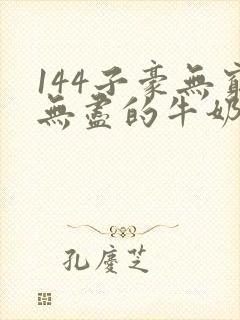 144子豪無窮
無盡的牛奶
孔慶芝